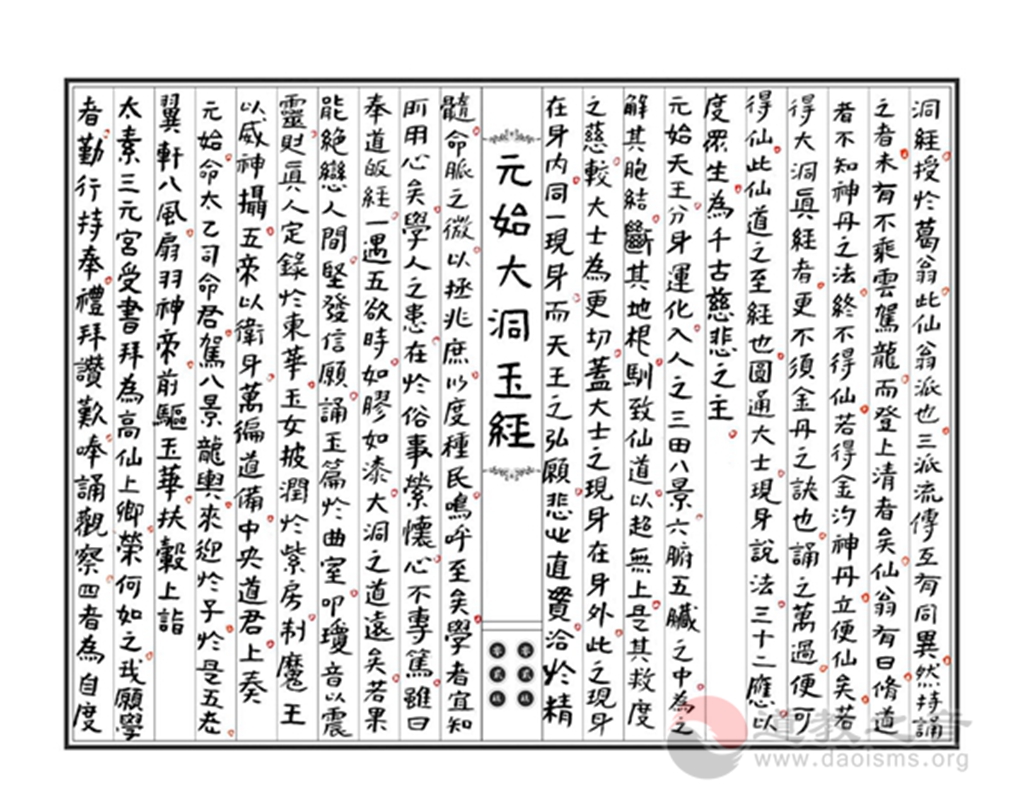 洞經授於葛翁此仙翁派也三派流傳互有同異然持誦
之者未有不乘雲駕龍而登上清者矣仙翁有曰脩道
者不知神丹之法終不得仙若得金汋神丹立便仙矣若
得大洞真經者更不須金丹之訣也誦之萬過便可
得仙此仙道之至經也圓通大士現身說法三十二應以
度眾生為千古慈悲之主
元始天王分身運化入人之三田八景六腑五臟之中為之
解其胞結斷其地根馴致仙道以超無上是其救度
之慈較大士為更切蓋大士之現身在身外此之現身
在身內同一現身而天王之弘願悲心直貫洽於精
元始大洞玉經
髓命脈之微以拯兆庶以度種民嗚呼至矣學者宜知
所用心矣學人之患在於俗事縈懷心不專篤雖曰
奉道皈經一遇五欲時如膠如漆大洞之道遠矣若果
能絕戀人間堅發信願誦玉篇於曲室叩瓊音以震
靈則真人定錄於東華玉女披潤於紫房制魔王
以威神攝五帝以衛身萬徧道備中央道君上奏
元始命太乙司命君駕八景龍輿來迎於子於是五老
翼軒八風扇羽神帝前驅玉華扶轂上詣
太素三元宮受書拜為高仙上卿榮何如之我願學
者勤行持奉禮拜讚歎唪誦觀察四者為自度
道教之音
www.daoisms.org